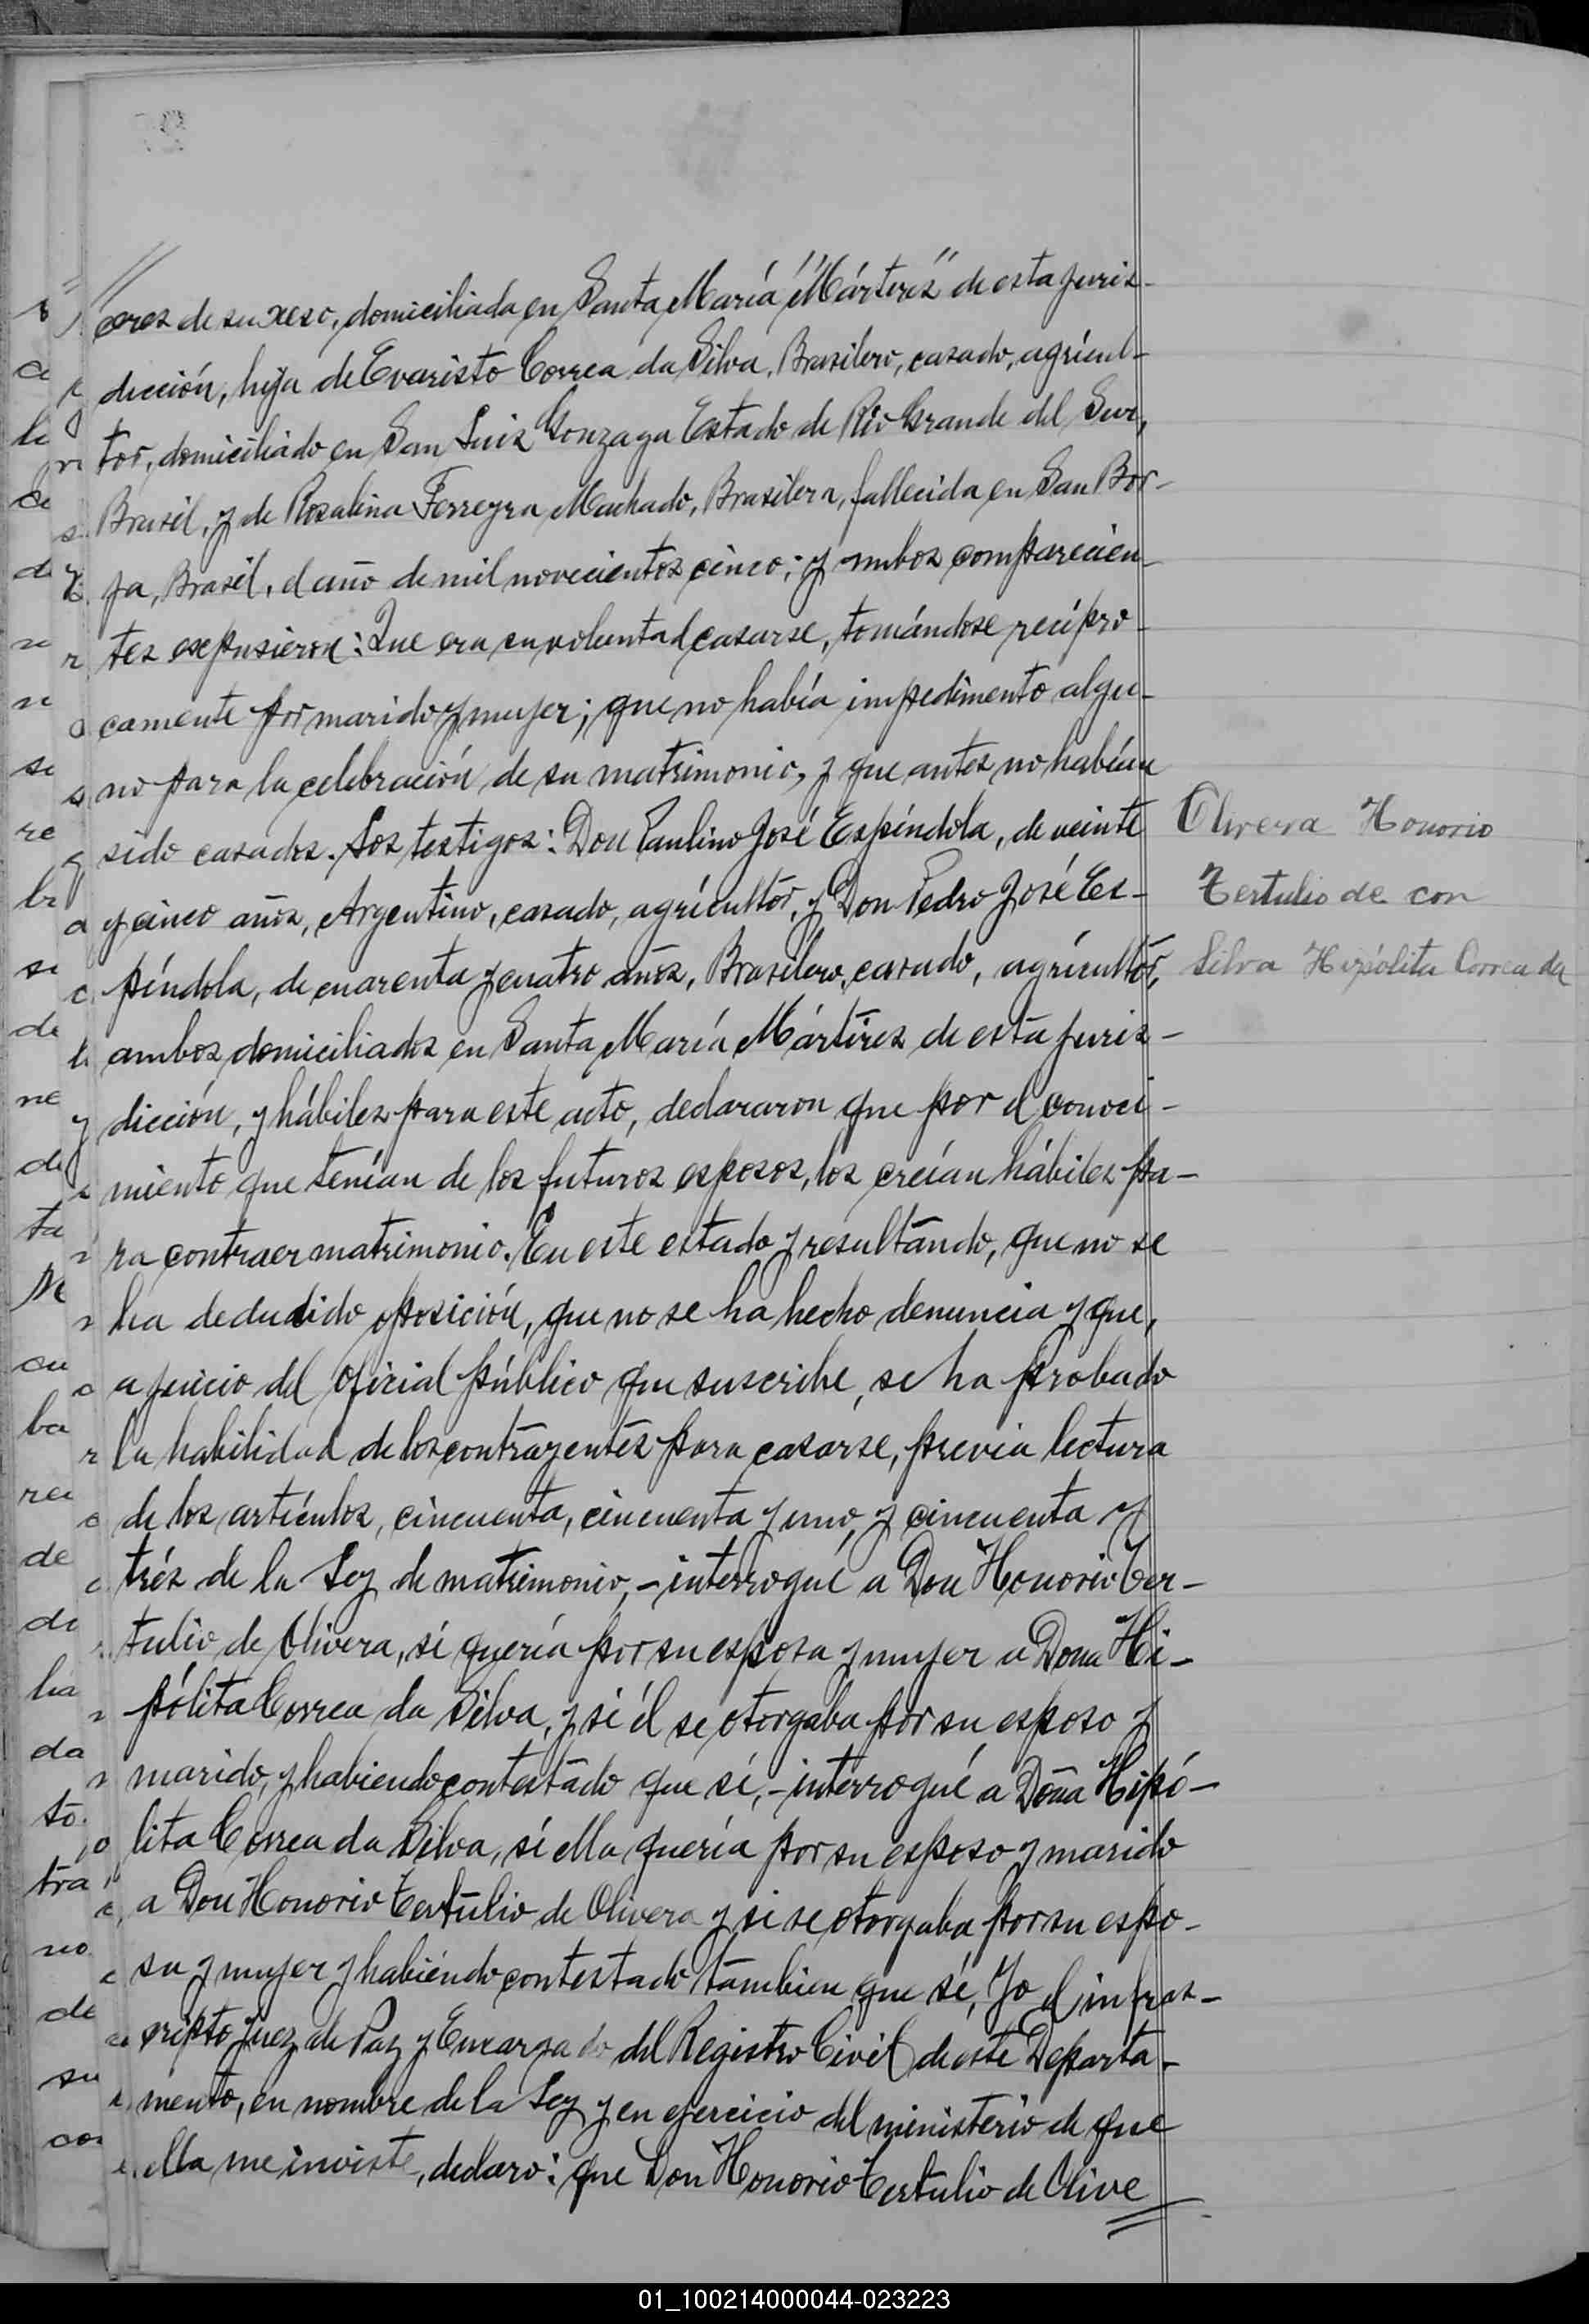 ceres de su xeso, domiciliada en Santa María "Mártires" de esta juris-
dicción, hija de Evaristo Correa da Silva, Brasilero, casado, agricul-
tor, domiciliado en San Luis Gonzaga Estado de Río Grande del Sur,
Brasil, y de Rosalina Ferreyra Machado, Brasilera, fallecida en San Bor-
ja, Brasil, el año de mil novecientos cinco; y ambos comparecien-
tes expusieron: Que era su voluntad casarse, tomándose recípro-
camente por marido y mujer; que no había impedimento algu-
no para la celebración de su matrimonio, y que antes no habían
sido casados. Los testigos: Don Paulino José Espíndola, de veinte
y cinco años, Argentino, casado, agricultor, y Don Pedro José Es-
píndola, de cuarenta y cuatro años, Brasilero, casado, agricultor,
ambos domiciliados en Santa María Mártires de esta juris-
dicción, y hábiles para este acto, declararon que por el conoci-
miento que tenían de los futuros esposos, los creían hábiles pa-
ra contraer matrimonio. En este estado y resultando, que no se
ha deducido oposición, que no se ha hecho denuncia y que,
a juicio del oficial público que suscribe, se ha probado
la habilidad de los contrayentes para casarse, previa lectura
de los artículos, cincuenta, cincuenta y uno, y cincuenta y
trés de la Ley de matrimonio,- interrogué a Don Honorio Ter-
tulio de Olivera, si quería por su esposa y mujer a Dona Hi-
pólita Correa da Silva, y si él se otorgaba por su esposo y
marido, y habiendo contestado que sí,- interrogué a Doña Hipó-
lita Correa da Silva, si ella quería por su esposo y marido
a Don Honorio Tertulio de Olivera y si se otorgaba por su espo-
sa y mujer y habiendo contestado tambien que sí, Yo el infras-
cripto Juez de Paz y Encargado del Registro Civil de este Departa-
mento, en nombre de la Ley y en ejercicio del ministerio de que
ella me inviste, declaro: que Don Honorio Tertulio de Olive
Olivera Honorio
Tertulio de con
Silva Hipólita Correa da
01_100214000044-023223